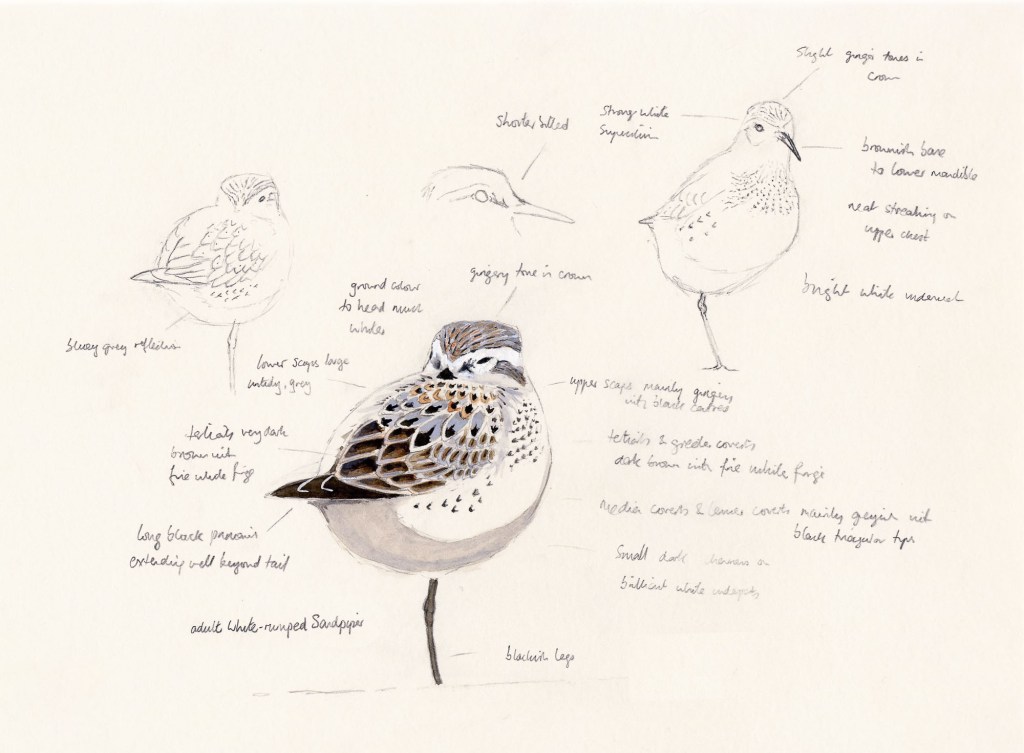 Slight ginger tones in
crown
Strong white
Supercilium
Shorter billed
brownish base
to lower mandible
neat streaking on
upper chest
bright white underneath
gingery tone in crown
ground colour
to head much
whiter
bluey grey reflection
lower scaps large
untidy, grey
upper scaps mainly gingery
with black centres
tertials very dark
brown with
fine white fringe
tertials & greater coverts
dark brown with fine white fringe
median coverts & lesser coverts mainly greyish with
black triangular tips
long black primaries
extending well beyond tail
Small dark chevrons on
brilliant white underparts
adult White-rumped Sandpiper
blackish legs